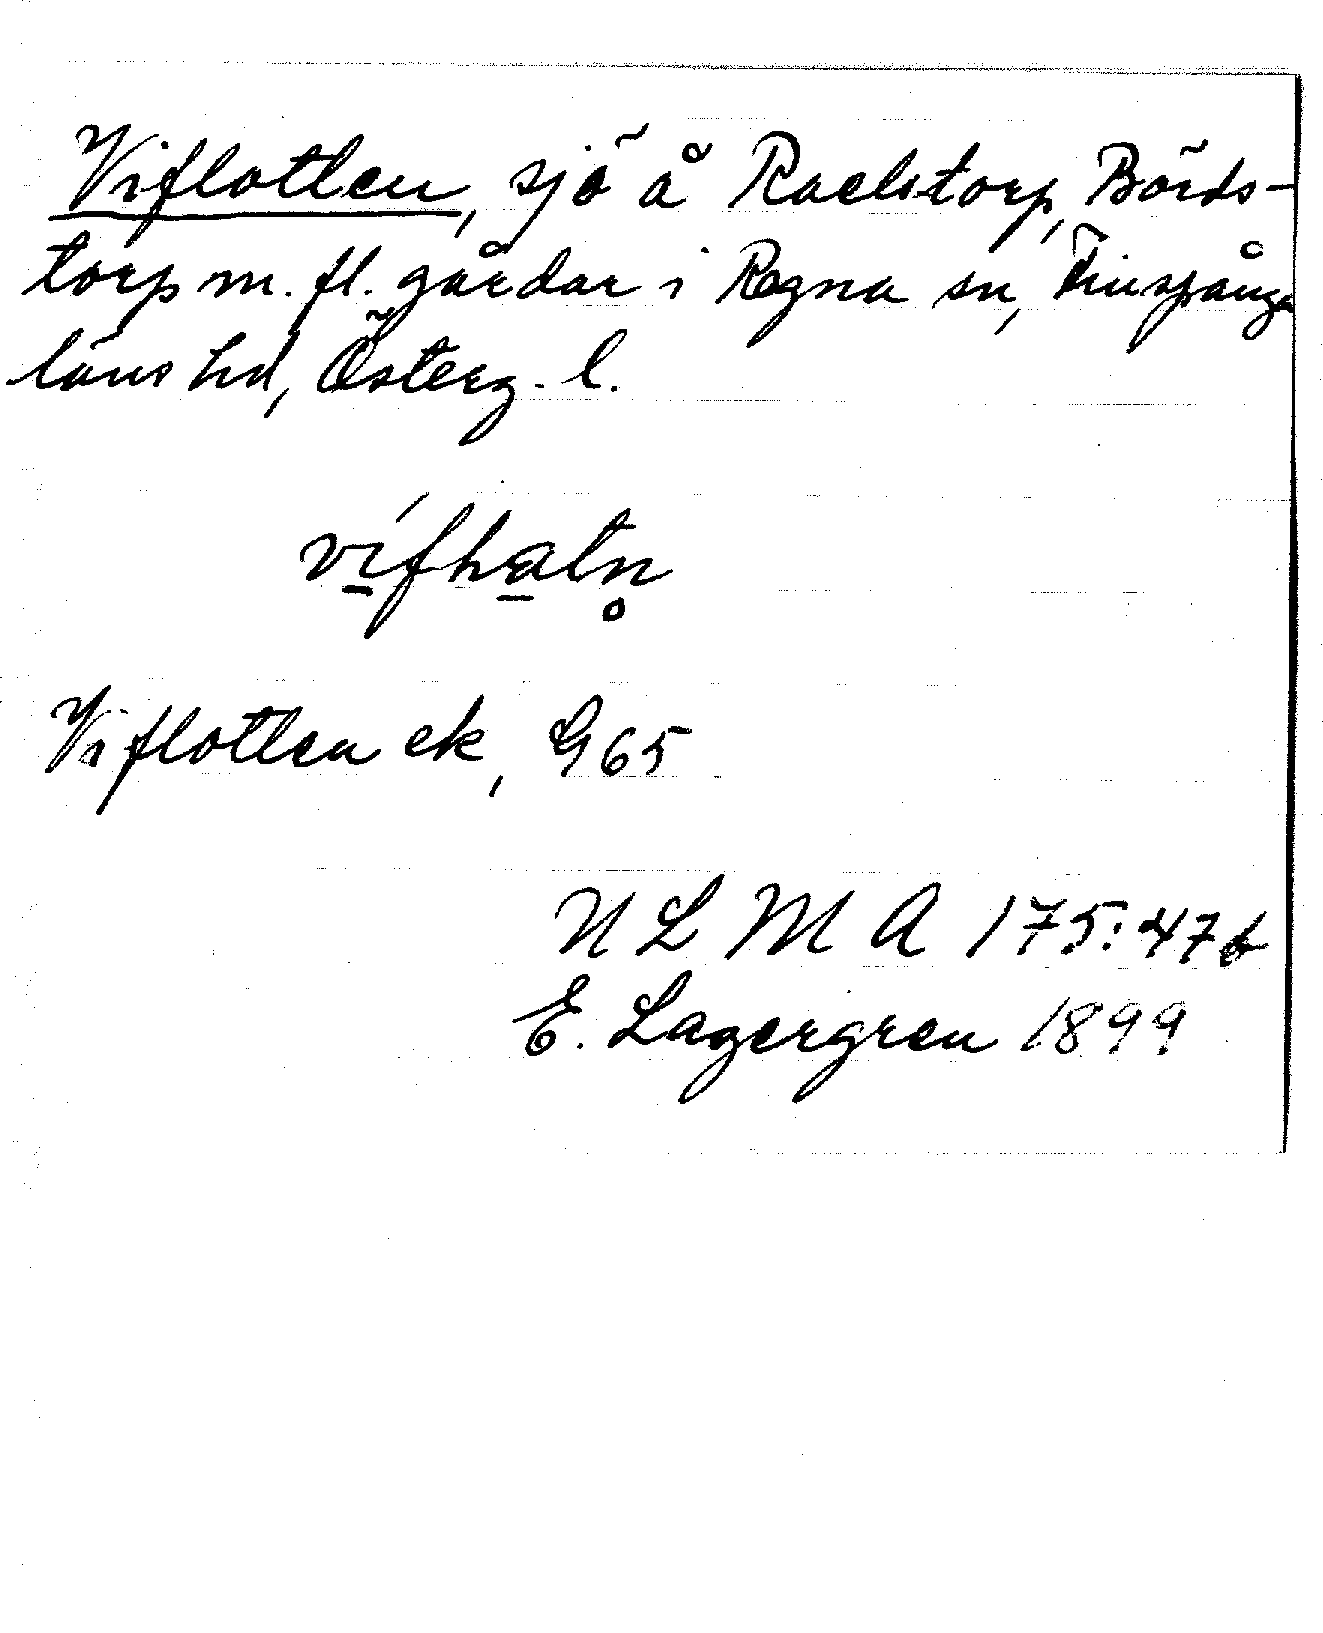 Viflotten, sjö å Raelstorp, Börds-
torp m. fl. gårdar i Regna sn, Finspånga
läns hd, Österg. l.
vífhatn̥
Viflotten ek, G 65
N L M A 175:47b
E. Lagergren 1899